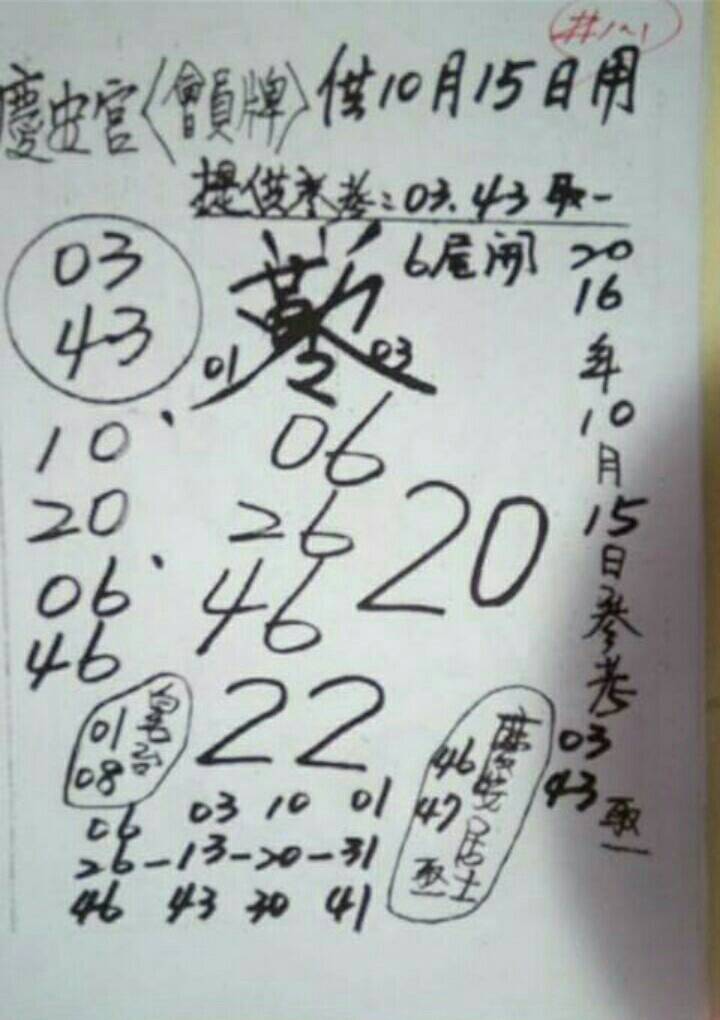 #1~1
慶安宮〈會員牌〉供10月15日用
提供參考:03.43取一
6尾開
03
43
01 03
10、
20
06、
46
06
26
46
20
22
2016年10月15日參考
03
43 取一
01
08
46
47
取一
06 03 10 01
26-13-20-31
46 43 30 41